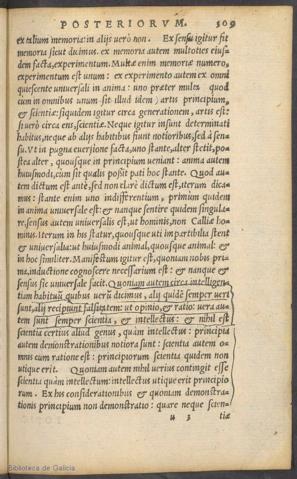 POSTERIORVM. 509
ex talium memoria: in alijs verò non. Ex sensu igitur fit
memoria sicut dicimus. ex memoria autem multoties eius-
dem facta, experimentum. Multæ enim memoriæ numero,
experimentum est unum: ex experimento autem ex omni
quiescente universali in anima: uno præter multa quod
cum in omnibus unum sit illud idem, artis principium,
& scientiæ: siquidem igitur circa generationem, artis est:
si verò circa ens, scientiæ. Neque igitur insunt determinati
habitus, neque ab alijs habitibus fiunt notioribus, sed à sen-
su. Vt in pugna euersione facta, uno stante, alter stetit, po-
stea alter, quousque in principium veniant: anima autem
huiusmodi, cum sit qualis possit pati hoc stante. Quod au-
tem dictum est antè, sed non clarè dictum est, iterum dica-
mus: stante enim uno indifferentium, primum quidem
in anima universale est: & nanque sentire quidem singula-
re. sensus autem universalis est, ut hominis, non Calliæ ho-
minis. iterum in his statur, quousque uti impartibilia stent
& universalia: ut huiusmodi animal, quousque animal: &
in hoc similiter. Manifestum igitur est, quoniam nobis pri-
ma, inductione cognoscere necessarium est: & nanque &
sensus sic universale facit. Quoniam autem circa intelligen-
tiam habituũ quibus verũ dicimus, alij quidẽ semper veri
sunt, alij recipiunt falsitatem: ut opinio, & ratio: vera au-
tem sunt semper scientia, & intellectus: & nihil est
scientia certius aliud genus, quàm intellectus: principia
autem demonstrationibus notiora sunt: scientia autem o-
mnis cum ratione est: principiorum scientia quidem non
utique erit. Quoniam autem nihil verius contingit esse
scientia quàm intellectum: intellectus utique erit principio
rum. Ex his considerationibus & quoniam demonstra-
tionis principium non demonstratio: quare neque scien-
u 3 tiæ
Biblioteca de Galicia